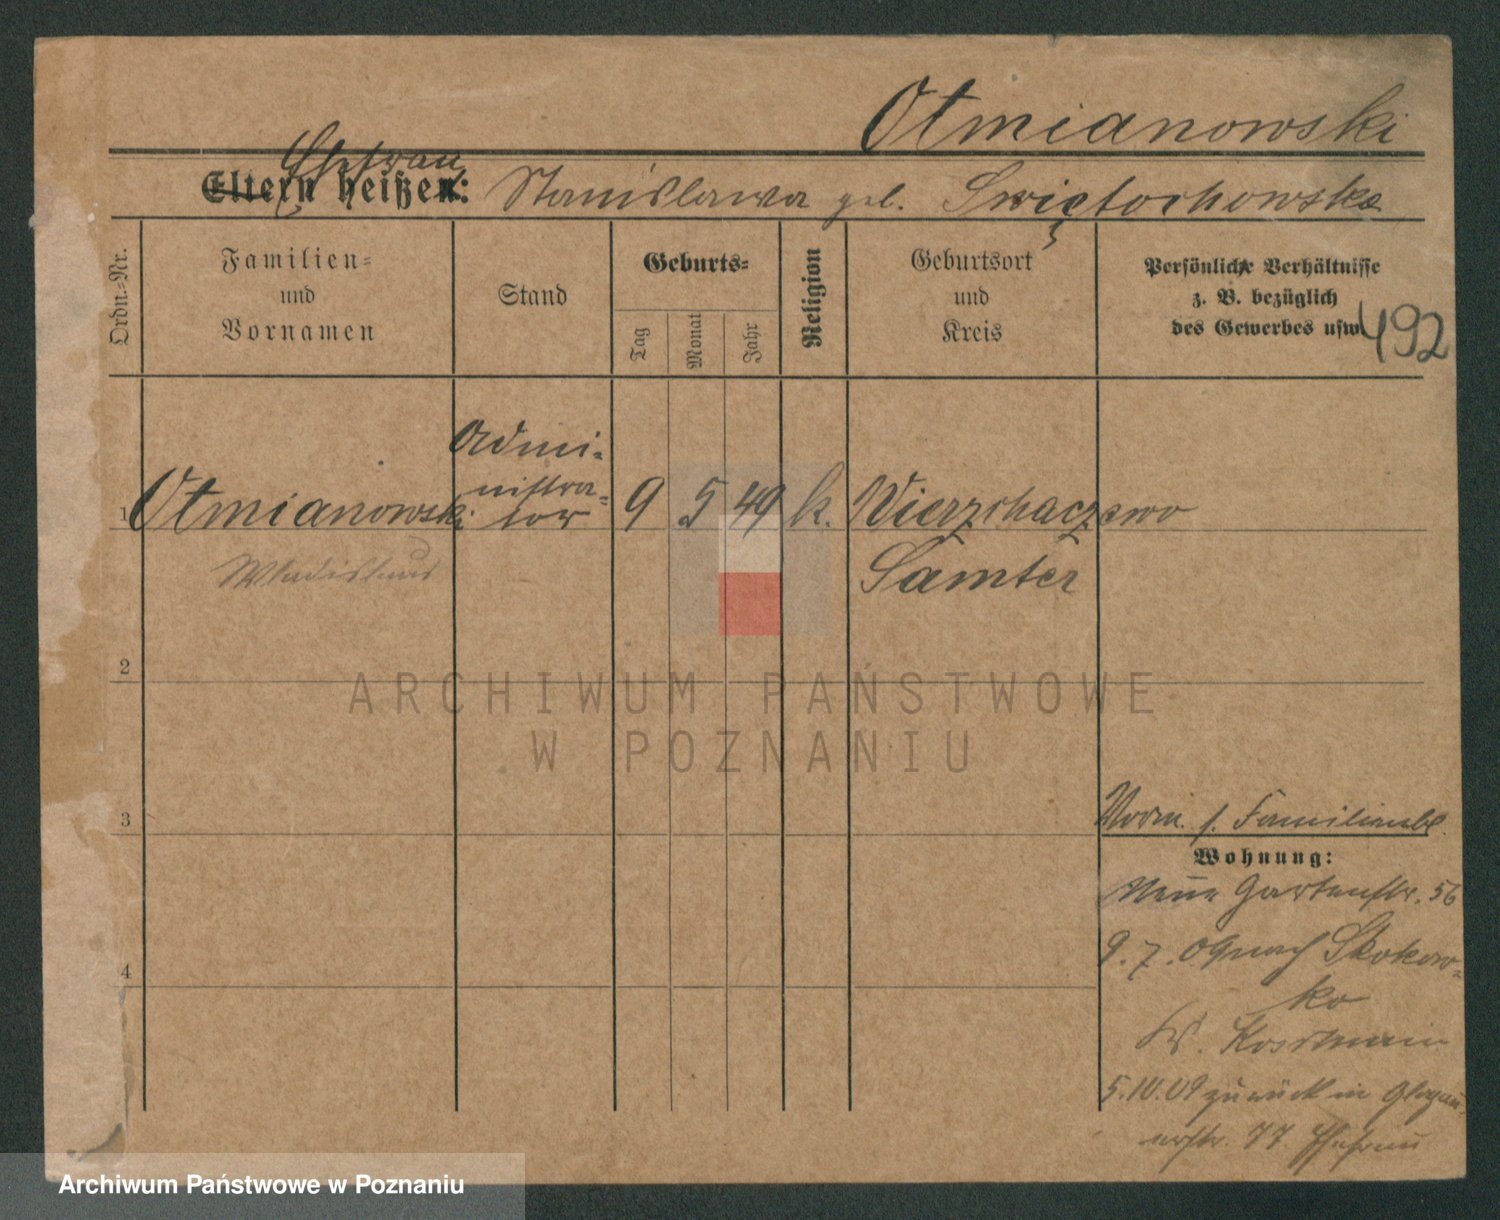 Otmianowski
Ehefrau
Eltern heißen: Stanislawa geb. Swiętochowska
Ordn.-Nr.
Familien-
und
Vornamen
Stand
Geburts-
Tag
Monat
Jahr
Religion
Geburtsort
und
Kreis
Persönliche Verhältnisse
z. B. bezüglich
des Gewerbes usw.
492
1 Otmianowski Admi-
nistra-
tor 9 5 49 k. Wierzchaczewo
Wladislaus Samter
2
ARCHIWUM PAŃSTWOWE
W POZNANIU
3
Vorm. s. Familienbl.
Wohnung:
Neue Gartenstr. 56
9.7.09 nach Skokow-
ko
Kr. Koschmin
4
5.10.09 zurück in Glogau-
erstr. 77 Ehefrau
Archiwum Państwowe w Poznaniu